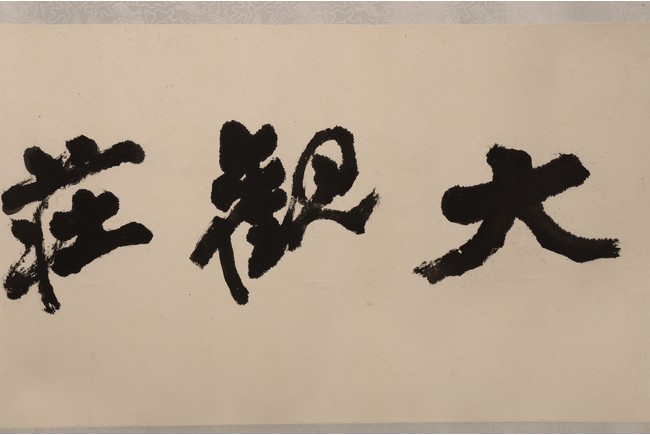 大觀莊